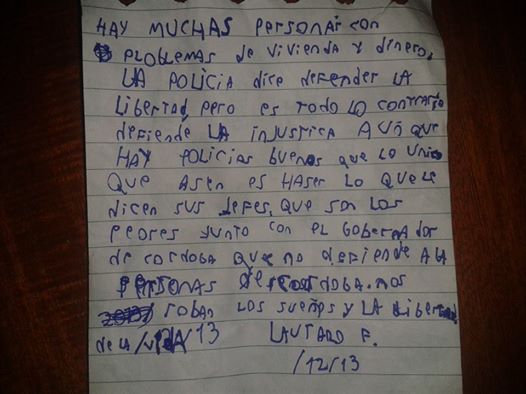 HAY MUCHAS PersonAs con
PLOBLEMAS de vivienda y dinero,
LA POLICIA dice defender LA
Libertad pero es todo lo contrario
defiende LA injustica AUN que
HAY Policias buenos que lo unico
Que Asen es HAser Lo que Le
dicen sus Jefes, Que son los
Peores junto con el Goberna dor
de cordoba que no defiende A LA
Personas de cordoba. nos
roban los sueños y LA Libertad
de LA 13
LAUTARO F.
/12/13